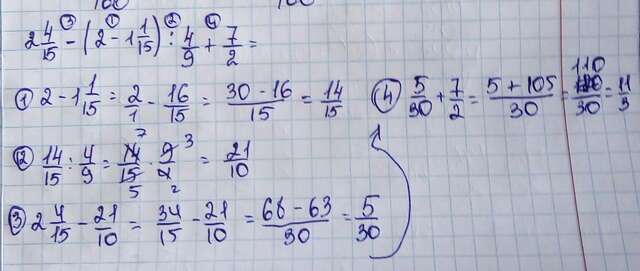 100 100
③ ① ② ④
2 4/15 - (2 - 1 1/15) : 4/9 + 7/2 =
① 2 - 1 1/15 = 2/1 - 16/15 = (30 - 16)/15 = 14/15
② 14/15 : 4/9 = 14/15 · 9/4 = 21/10
7 3
5 2
③ 2 4/15 - 21/10 = 34/15 - 21/10 = (68 - 63)/30 = 5/30
④ 5/30 + 7/2 = (5 + 105)/30 = 110/30 = 11/3